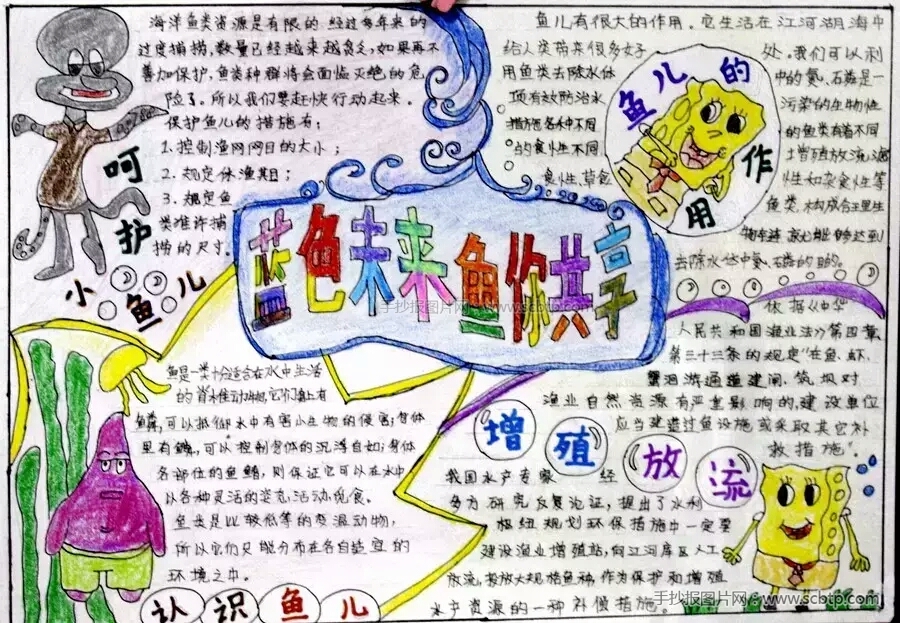 海洋鱼类资源是有限的 经过多年来的
过度捕捞,数量已经越来越
如果再不
善加保护,鱼类种群将会面临灭绝的危
险了。所以我们要赶快行动起来。
保护鱼儿的措施有:
1.控制渔网网目的大小;
2.规定休渔期;
3.规定鱼
类准许捕
捞的尺寸。
呵护
小鱼儿
蓝色未来 鱼你共享
手抄报图片网 www.scbtp.com
鱼儿有很大的作用。它生活在江河湖海中
给人类带来很多好
处。我们可以利
用鱼类去除水体
中的氮、磷是一
项有效防治水
污染的生物性
措施各种不同
的鱼类有着不同
的食性不同
增殖放流滤
食性、草食
性和杂食性等
鱼类,
能够达到
去除水体中氮、磷的目的。
鱼儿的
作用
依据《中华
人民共和国渔业法》第四章
第三十三条的规定“在鱼、虾、
蟹洄游通道建闸、筑坝对
渔业自然资源有严重影响的,建设单位
应当建造过鱼设施或采取其它补
救措施”。
鱼是一类十分适合在水中生活
的脊椎动物,它们体上有
鳞,可以抵御水中有害小生物的侵害;身体
里有鳔,可以控制身体的沉浮自如;身体
各部位的鱼鳍,则保证它可以在水中
以各种灵活的姿态活动、觅食。
鱼类是比较低等的变温动物,
所以它们只能分布在各自适宜的
环境之中。
认识鱼儿
增殖放流
我国水产专家 经
多方研究反复论证,提出了水利
枢纽规划环保措施中一定要
建设渔业增殖站,向江河库区人工
放流,投放大规格鱼种,作为保护和增殖
水产资源的一种补偿措施。
手抄报图片网:www.scbtp.com